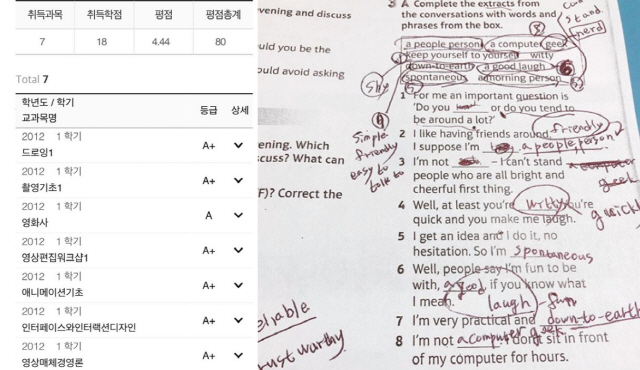 취득과목 취득학점 평점 평점총계
7 18 4.44 80
Total 7
학년도 / 학기
교과목명
등급 상세
2012 1 학기
드로잉1
A+
2012 1 학기
촬영기초1
A+
2012 1 학기
영화사
A
2012 1 학기
영상편집워크샵1
A+
2012 1 학기
애니메이션기초
A+
2012 1 학기
인터페이스와인터랙션디자인
A+
2012 1 학기
영상매체경영론
A+
vening and discuss
ould you be the
ould avoid asking
ening. Which
scuss? What can
F)? Correct the
reliable
trust worthy
3 A Complete the extracts from
the conversations with words and
phrases from the box.
stand
nerd
a people person a computer geek
keep yourself to yourself witty
down-to-earth a good laugh
spontaneous a morning person
shy
simple
friendly
easy to
talk to
1 For me an important question is
'Do you or do you tend to
be around a lot?
2 I like having friends around friendly
I suppose I'm a people person
3 I'm not – I can't stand a computer
geek
people who are all bright and
cheerful first thing.
4 Well, at least you're witty you're
quick and you make me laugh.
quick
5 I get an idea and I do it, no
hesitation. So I'm spontaneous
6 Well, people say I'm fun to be
with, a good if you know what
I mean. laugh - fun
7 I'm very practical and down-to-earth
8 I'm not a computer geek don't sit in front
of my computer for hours.